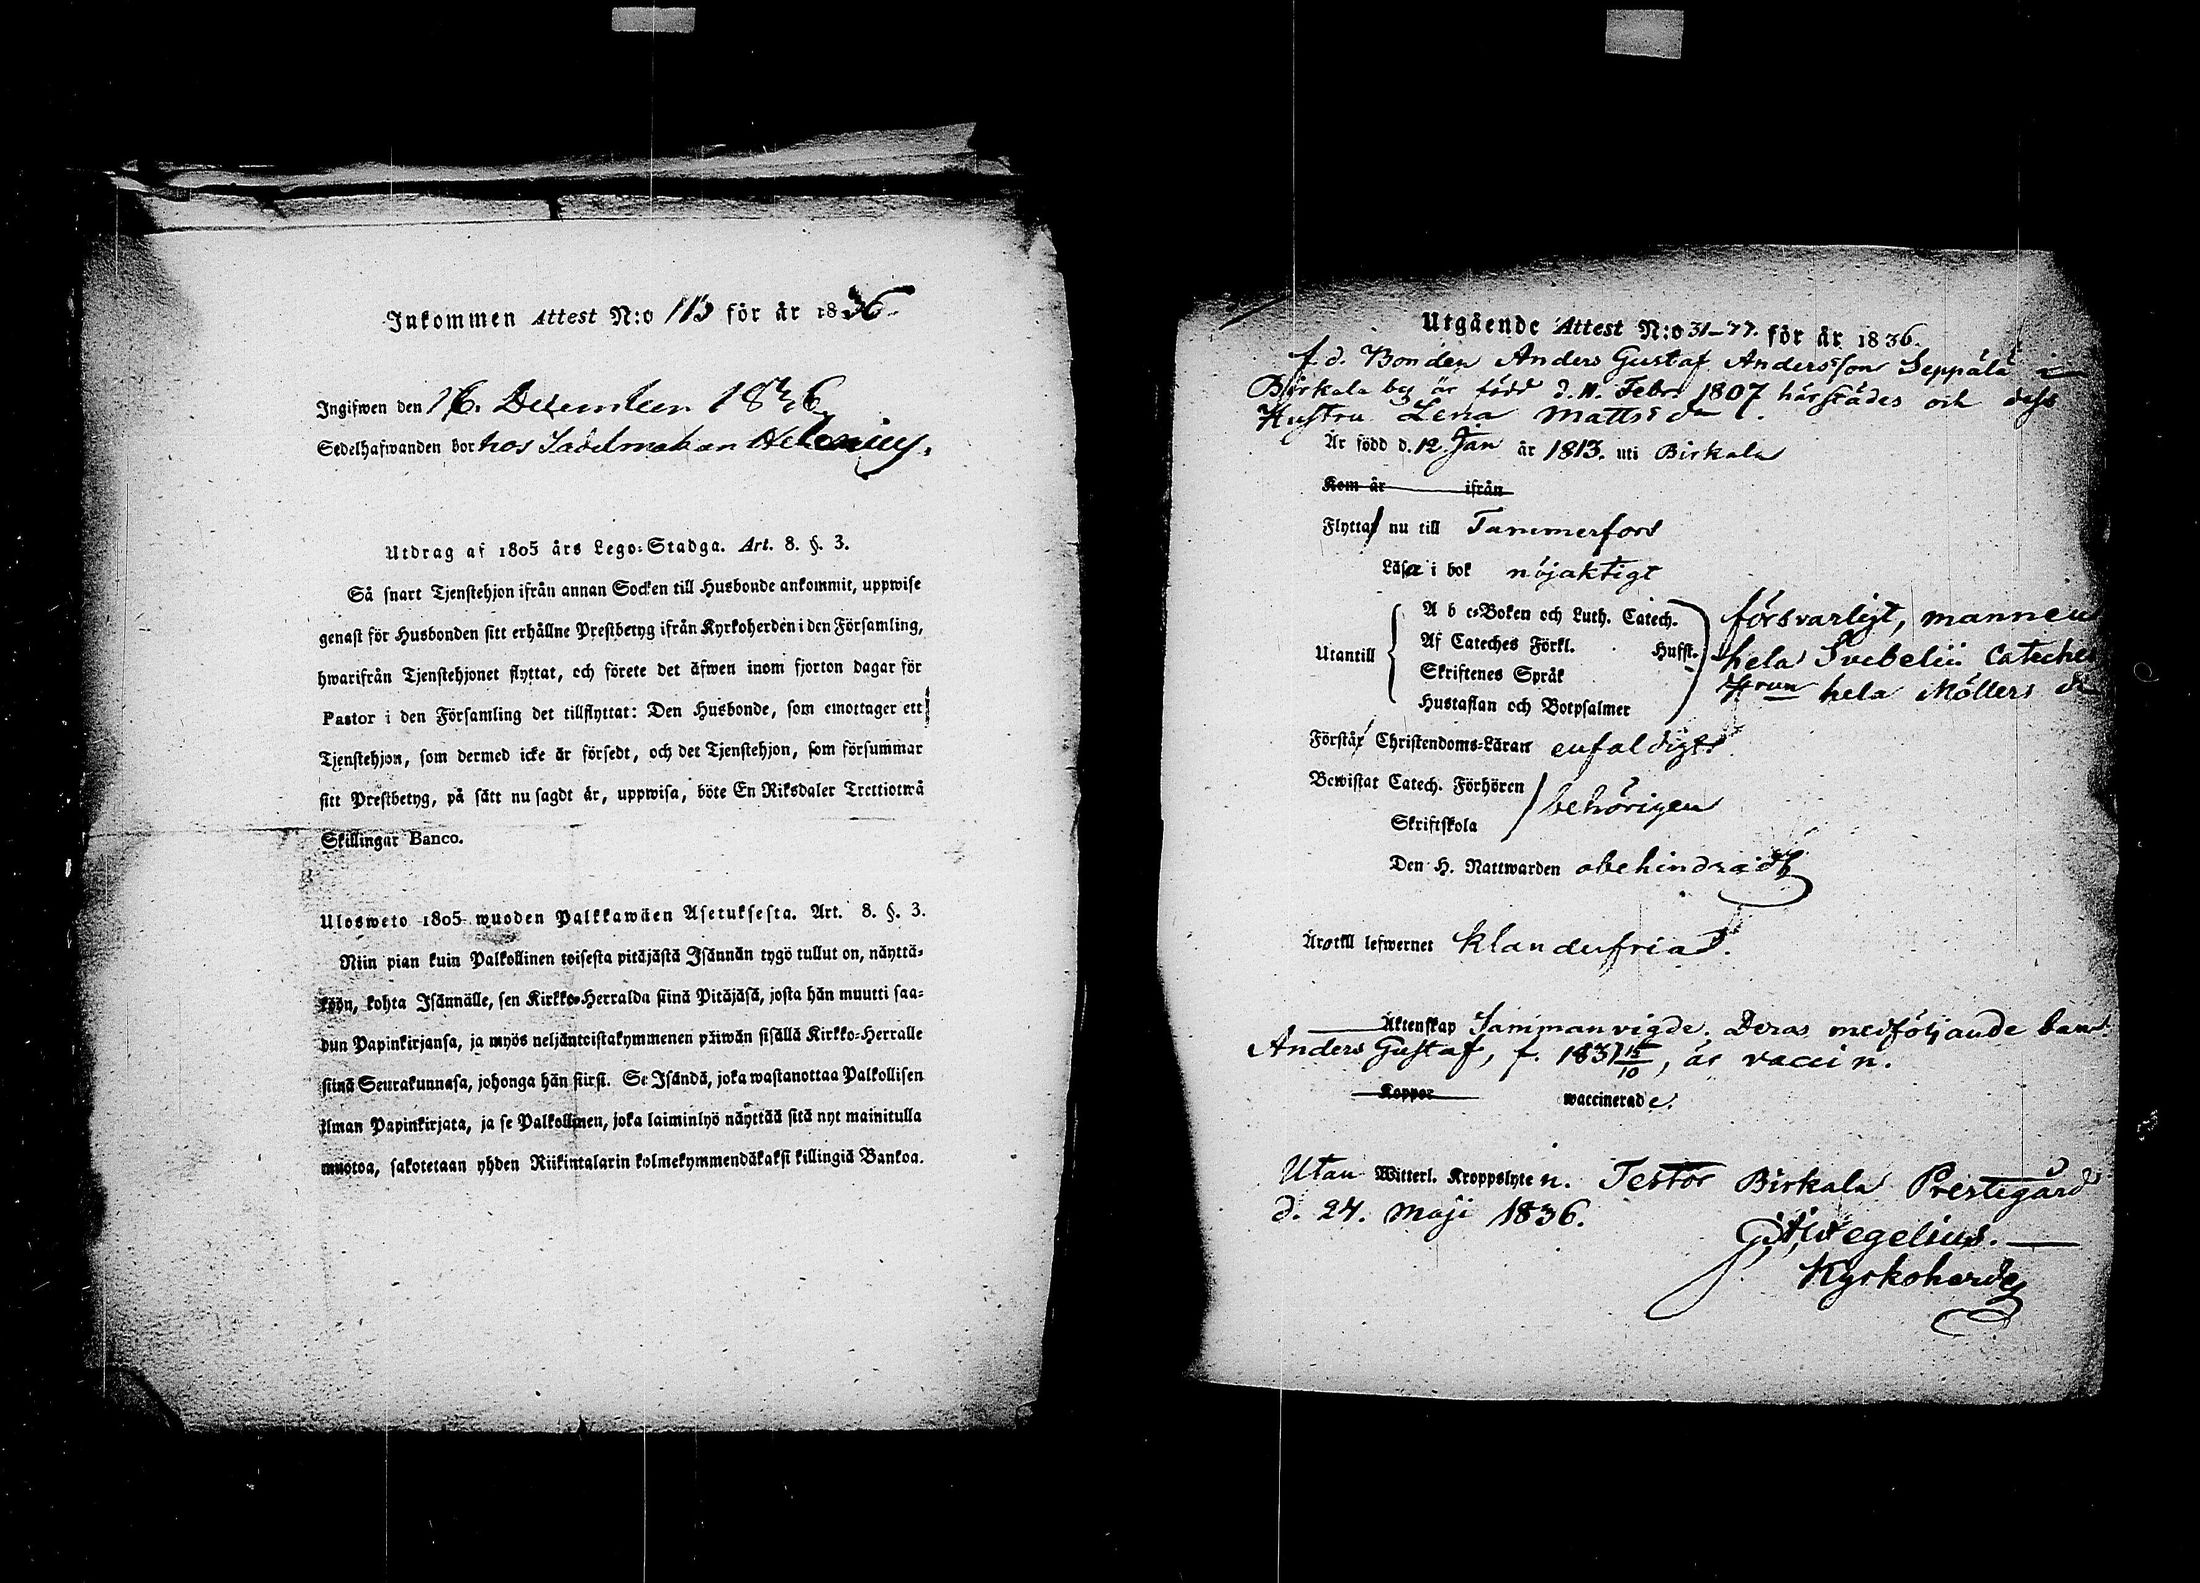 Inkommen Attest N:o 113 för år 1836.
Ingifwen den 16. December 1836.
Sedelhafwanden bor hos Sadelmakan Helenius.
Utdrag af 1805 års Lego-Stadga. Art. 8. §. 3.
Så snart Tjenstehjon ifrån annan Socken till Husbonde ankommit, uppwise
genast för Husbonden sitt erhållne Prestbetyg ifrån Kyrkoherden i den Församling,
hwarifrån Tjenstehjonet flyttat, och förete det äfwen inom fjorton dagar för
Pastor i den Församling det tillflyttat: Den Husbonde, som emottager ett
Tjenstehjon, som dermed icke är försedt, och det Tjenstehjon, som försummar
sitt Prestbetyg, på sätt nu sagdt är, uppwisa, böte En Riksdaler Trettiotwå
Skillingar Banco.
Ulosweto 1805 wuoden Palkkawäen Asetuksesta. Art. 8. §. 3.
Niin pian kuin Palkollinen toisesta pitäjästä Isännän tygö tullut on, näyttä-
köön, kohta Isännälle, sen Kirkko-Herralda siinä Pitäjäsä, josta hän muutti saa-
dun Papinkirjansa, ja myös neljäntoistakymmenen päiwän sisällä Kirkko-Herralle
siinä Seurakunnasa, johonga hän siirsi. Se Isändä, joka wastanottaa Palkollisen
ilman Papinkirjata, ja se Palkollinen, joka laiminlyö näyttää sitä nyt mainitulla
muotoa, sakotetaan yhden Riikintalarin kolmekymmendäkaksi killingiä Bankoa.
Utgående Attest N:o 31-77. för år 1836.
f. d. Bonden Anders Gustaf Andersson Seppälä i
Birkala by är född d. 11. Febr. 1807 härstädes och dess
Hustru Lena Mattsdr
Är född d. 12. Jan år 1813. uti Birkala
Kom år ifrån
Flytta nu till Tammerfors
Läsa i bok nöjaktigt
Utantill
A b c-Boken och Luth. Catech. försvarligt, mannen
Af Cateches Förkl. Hufst. hela Svebelii Cateches
Skriftenes Språk hela Möllers
Hustaflan och Botpsalmer
Förstår Christendoms-Läran enfaldigt
Bewistat Catech. Förhören behörigen
Skriftskola
Den H. Nattwarden obehindradt
Äro till lefwernet klanderfria.
Äktenskap Sammanvigde. Deras medföljande barn
Anders Gustaf, f. 1831 15/10, är vaccin.
Koppor waccinerade.
Utan Witterl. Kroppslyten. Testor Birkala Prestegård
d. 24. Maji 1836.
Wegelius.
Kyrkoherde